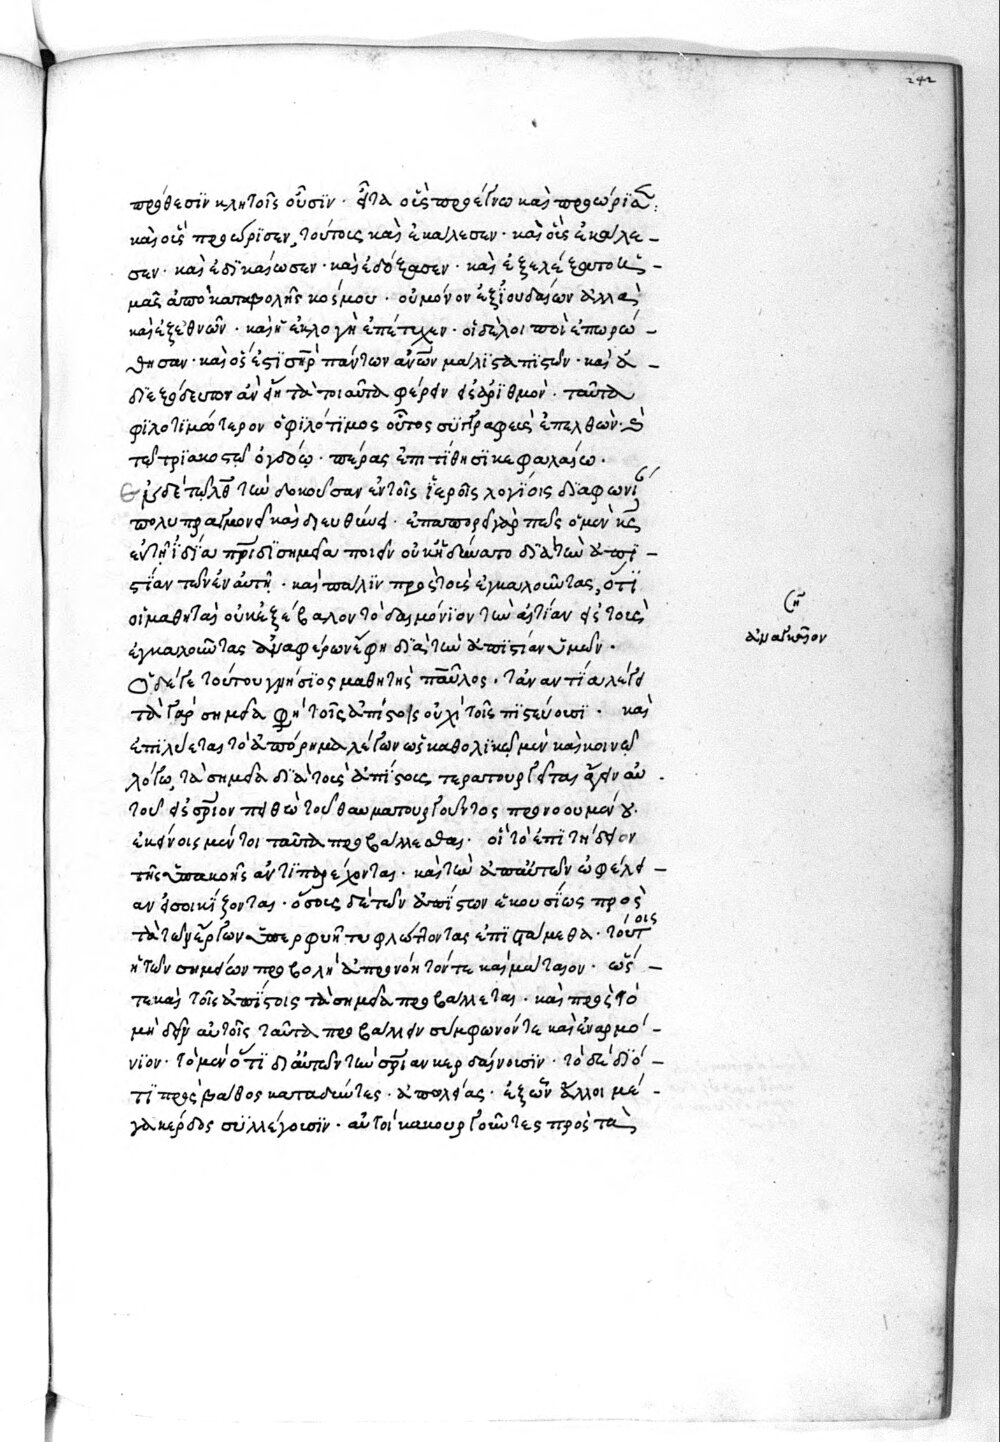 242
πρόθεσϊν κλητοῖς οὖσϊν· εἶτα οὓς προέγνω καὶ προώρϊσε:
καὶ οὓς προώρϊσεν, τούτους καὶ ἐκάλεσεν· καὶ οὓς ἐκάλε–
σεν· καὶ ἐδϊκαίωσεν· καὶ ἐδόξασεν· καὶ ἐξελέξατο ἡ–
μᾶς ἀπὸ καταβολῆς κόσμου· οὐ μόνον ἐξ ϊουδαίων ἀλλὰ
καὶ ἐξ ἐθνῶν· καὶ ἡ ἐκλογὴ ἐπέτυχεν· οἱ δὲ λοιποὶ ἐπωρώ–
θησαν· καὶ ὅς ἐςϊ σὴρ πάντων ἀνῶν μάλϊςα πϊςῶν· καὶ
δϊεξόδευτον ἂν εἴη τὰ τοιαῦτα φέρειν εἰς ἀρϊθμόν· ταῦτα
φϊλοτϊμότερον ὁ φϊλότϊμος οὗτος συγγραφεὺς ἐπελθὼν·
τῶ τρϊακοςῶ ὀγδόω· πέρας ἐπιτίθησϊ κεφαλαίω·
τὴν δοκοῦσαν ἐν τοῖς ϊεροῖς λογϊοις δϊαφωνί
πολυπραγμονεῖ καὶ διευθύνει· ἐπαπορεῖ γὰρ πῶς ὁ μὲν κς
ἐν τῆ ϊδία πρϊδϊ σημεῖα ποιεῖν οὐκ ἠδύνατο δϊὰ τὴν ἀπϊ–
ςίαν τῶν ἐν αὐτῆ· καὶ πάλϊν πρὸς τοὺς ἐγκαλοῦντας, ὅτϊ
οἱ μαθηταὶ οὐκ ἐξέβαλον τὸ δαιμόνϊον τὴν αἰτίαν εἰς τοὺς
ἐγκαλοῦντας ἀναφέρων ἔφη δϊὰ τὴν ἀπϊςίαν ὑμῶν·
Ὁ δέ γε τούτου γνήσϊος μαθητὴς παῦλος· τἀναντία λέγει
τὰ γὰρ σημεῖα φη τοῖς ἀπίςοις οὐχὶ τοῖς πϊςεύουσι· καὶ
ἐπϊλύεται τὸ ἀπόρημα λέγων ὡς καθολϊκῶ μὲν καὶ κοινῶ
λόγω, τὰ σημεῖα δϊὰ τοὺς ἀπίςους τερατουργεῖται
τοῦ θαυματουργοῦντος προνοουμένου·
ἐκείνοις μέντοι ταῦτα προβάλλεσθαι· οἳ τὸ ἐπιτήδειον
τῆς ὑπακοῆς ἀντϊπαρέχονται· καὶ τὴν ἀπ αὐτῶν ὠφέλει–
αν εἰσοικίζονται· ὅσους δὲ τῶν ἀπίςων ἑκουσίως πρὸς
τὰ τῶν ἔργων ὑπερφυῆ τυφλώττοντας ἐπϊςάμεθα· τούτοις
ἡ τῶν σημείων προβολὴ ἀπρονόητόν τε καὶ μάταιον· ὥς–
τε καὶ τοῖς ἀπίςοις τὰ σημεῖα προβάλλεται· καὶ πρὸς τὸ
μὴ δεῖν αὐτοῖς ταῦτα προβάλλειν σύμφωνόν τε καὶ ἐναρμό–
νϊον· τὸ μὲν ὅτϊ δι αὐτῶν τὴν σρίαν κερδαίνουσϊν· τὸ δὲ δϊό–
τϊ πρὸς βάθος καταδύντες· ἀπωλείας· ἐξ ὧν ἄλλοι μέ–
γα κέρδος συλλέγουσϊν· αὐτοὶ κακουργοῦντες πρὸς τὰ
ση
ἀναγκαῖον